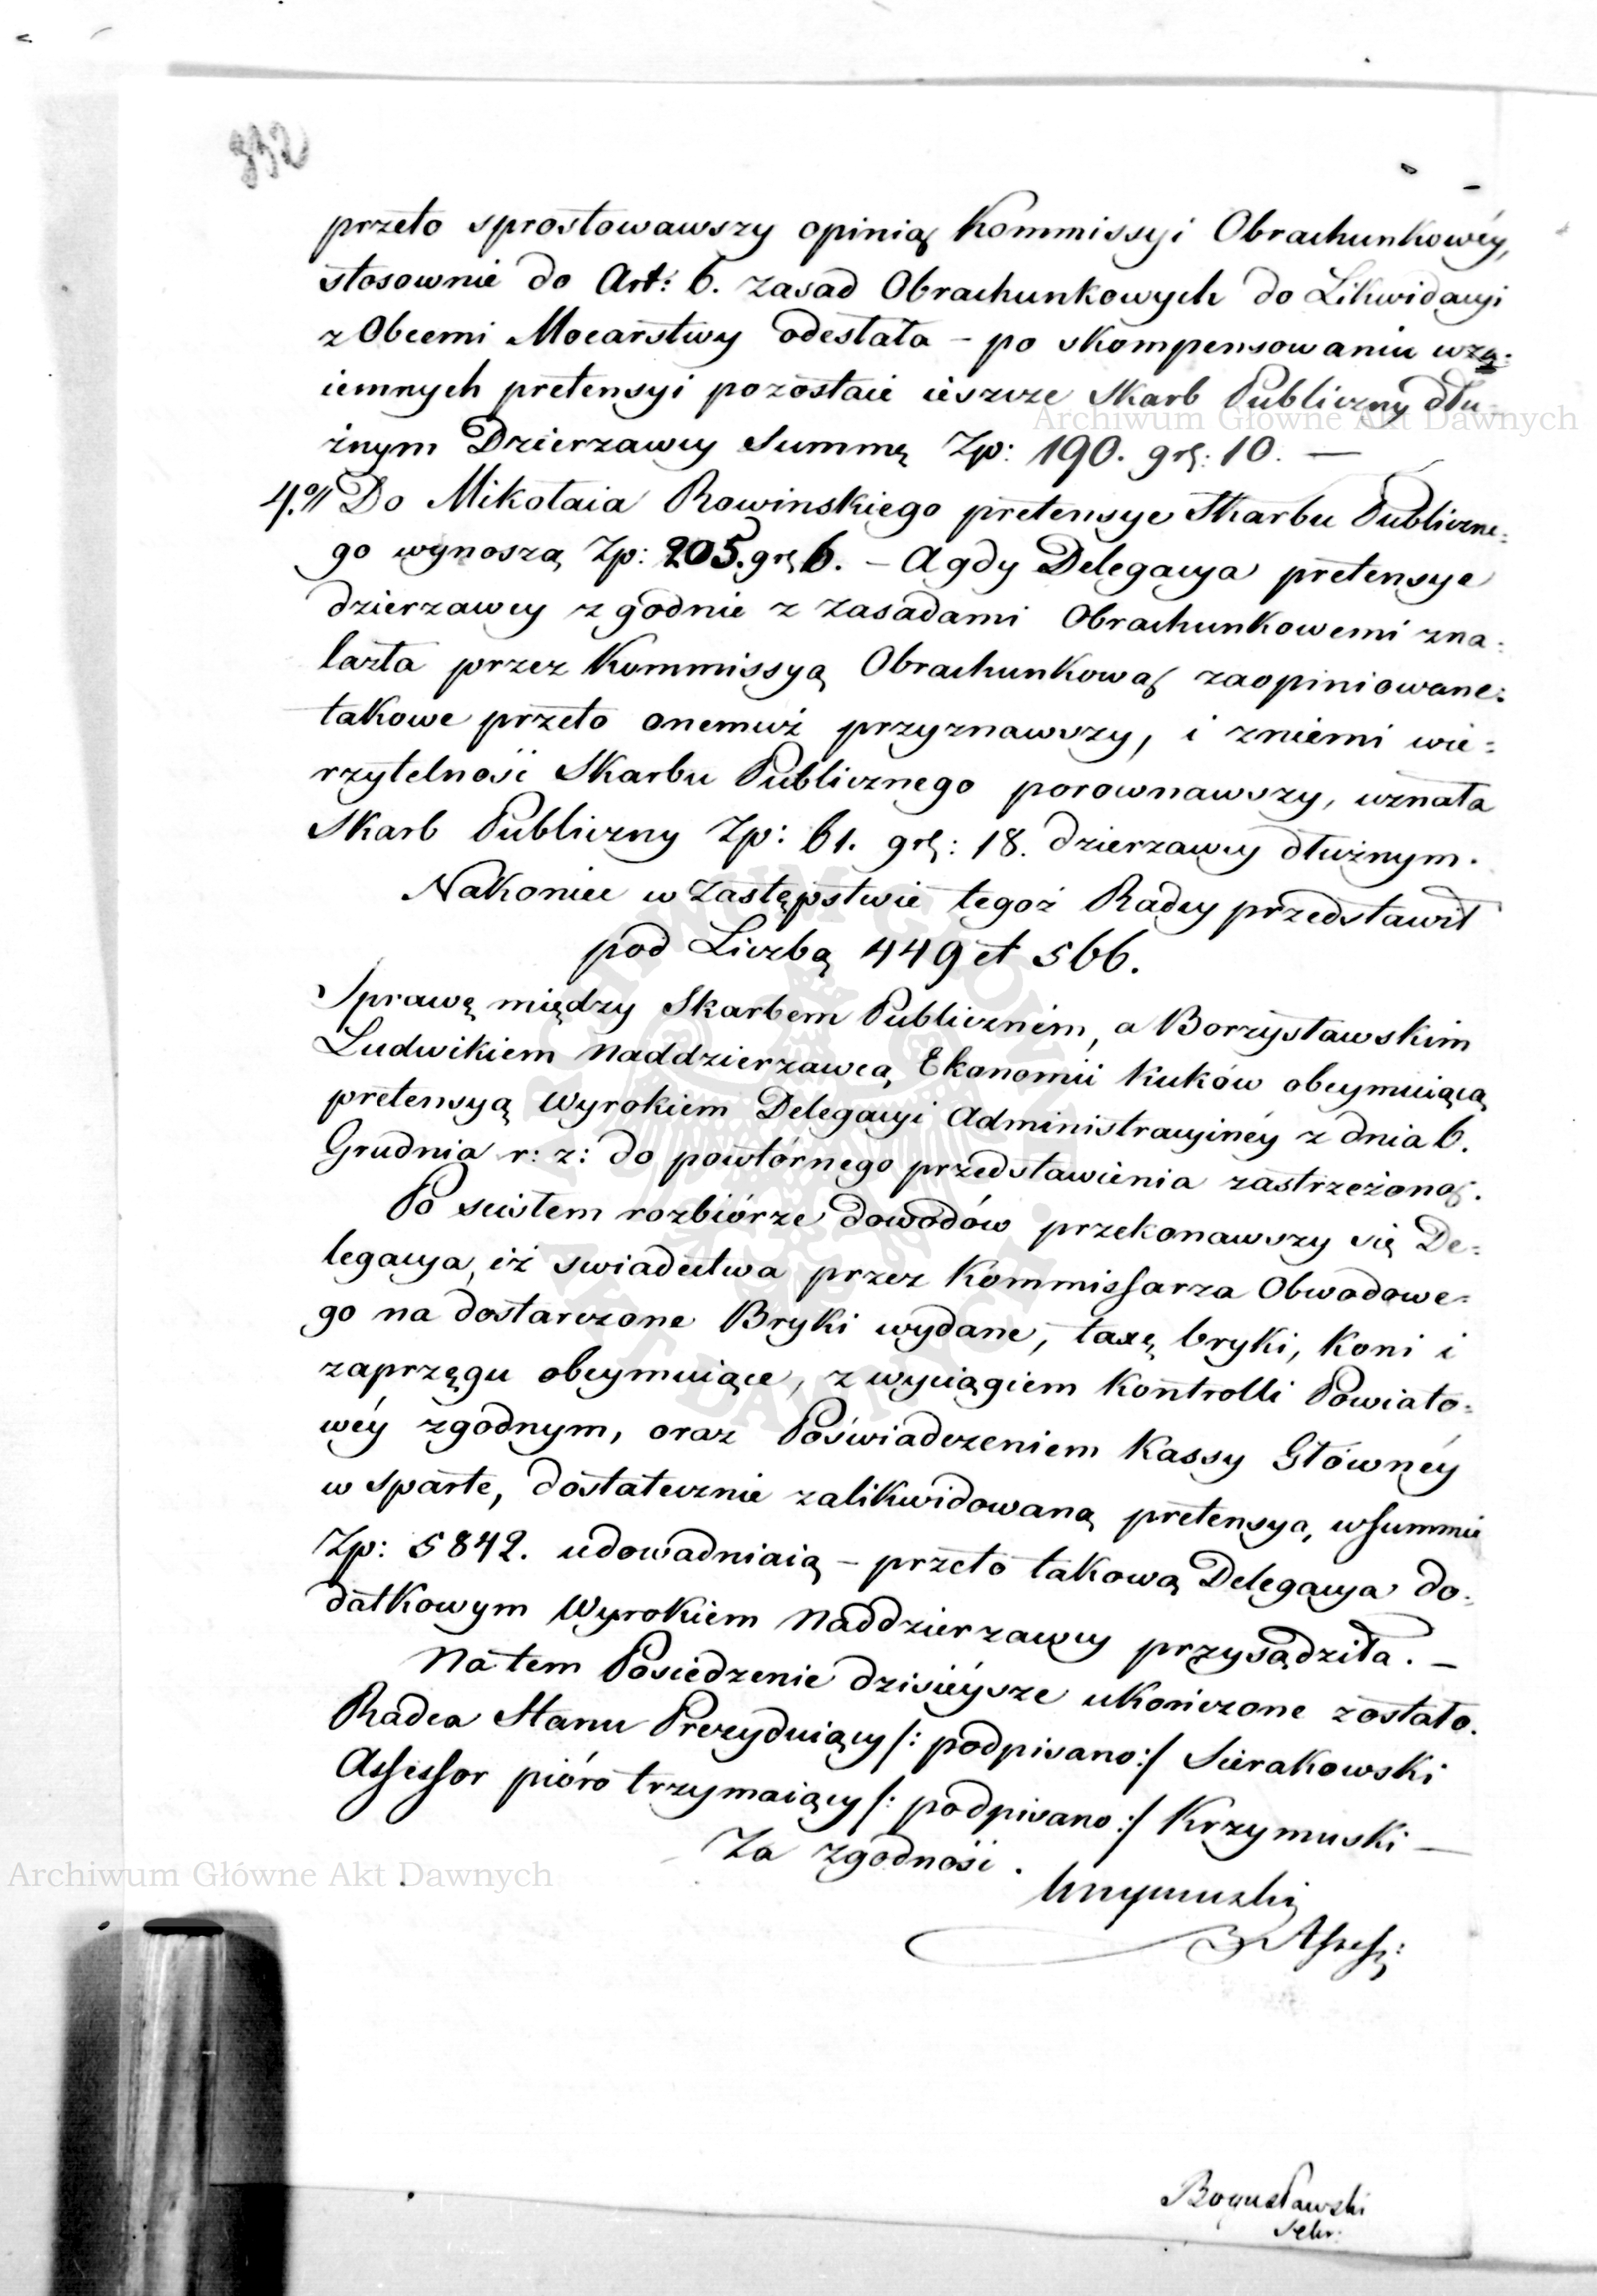 przeto sprostowawszy opinią Kommissyi Obrachunkowéy,
stosownie do Art: 6. zasad Obrachunkowych do Likwidacyi
z Obcemi Mocarstwy odesłała – po skompensowaniu wza=
iemnych pretensyi pozostaie ieszcze Skarb Publiczny dłu=
Archiwum Główne Akt Dawnych
żnym Dzierzawcy Summę Zp: 190. gr: 10. —
4.º// Do Mikołaia Rowinskiego pretensye Skarbu Publiczne=
go wynoszą Zp: 205. gr 6. – A gdy Delegacya pretensye
dzierzawcy zgodnie z zasadami Obrachunkowemi zna=
lazła przez Kommissyą Obrachunkową zaopiniowane:
takowe przeto onemuż przyznawszy, i zniemi wie=
rzytelność Skarbu Publicznego porownawszy, uznała
Skarb Publiczny Zp: 61. gr: 18. dzierzawcy dłużnym.
Nakoniec w Zastępstwie tegoż Radcy przedstawił
pod Liczbą 449 et 566.
Sprawę między Skarbem Publicznem, a Borzysławskim
Ludwikiem Naddzierzawcą Ekonomii Kuków obeymuiącą
pretensyą Wyrokiem Delegacyi Administracyinéy z dnia 6.
Grudnia r: z: do powtórnego przedstawienia zastrzeżoną.
Po scisłem rozbiórze dowodów przekonawszy się De=
legacya, iż swiadectwa przez Kommissarza Obwodowe=
go na dostarczone Bryki wydane, taxę bryki, koni i
zaprzęgu obeymuiące, z wyciągiem Kontrolli Powiato=
wéy zgodnym, oraz Poświadczeniem Kassy Głównéy
wsparte, dostatecznie zalikwidowaną pretensyą, w summie
Zp: 5842. udowadniaią – przeto takową Delegacya do=
datkowym Wyrokiem Naddzierzawcy przysądziła. –
Na tem Posiedzenie dzisiéysze ukończone zostało.
Radca Stanu Prezyduiący /: podpisano :/ Sierakowski
Assessor pióro trzymaiący /: podpisano :/ Krzymuski —
Za zgodność.
Archiwum Główne Akt Dawnych
Krzymuski
Assess:
Bogusławski
Sekr: